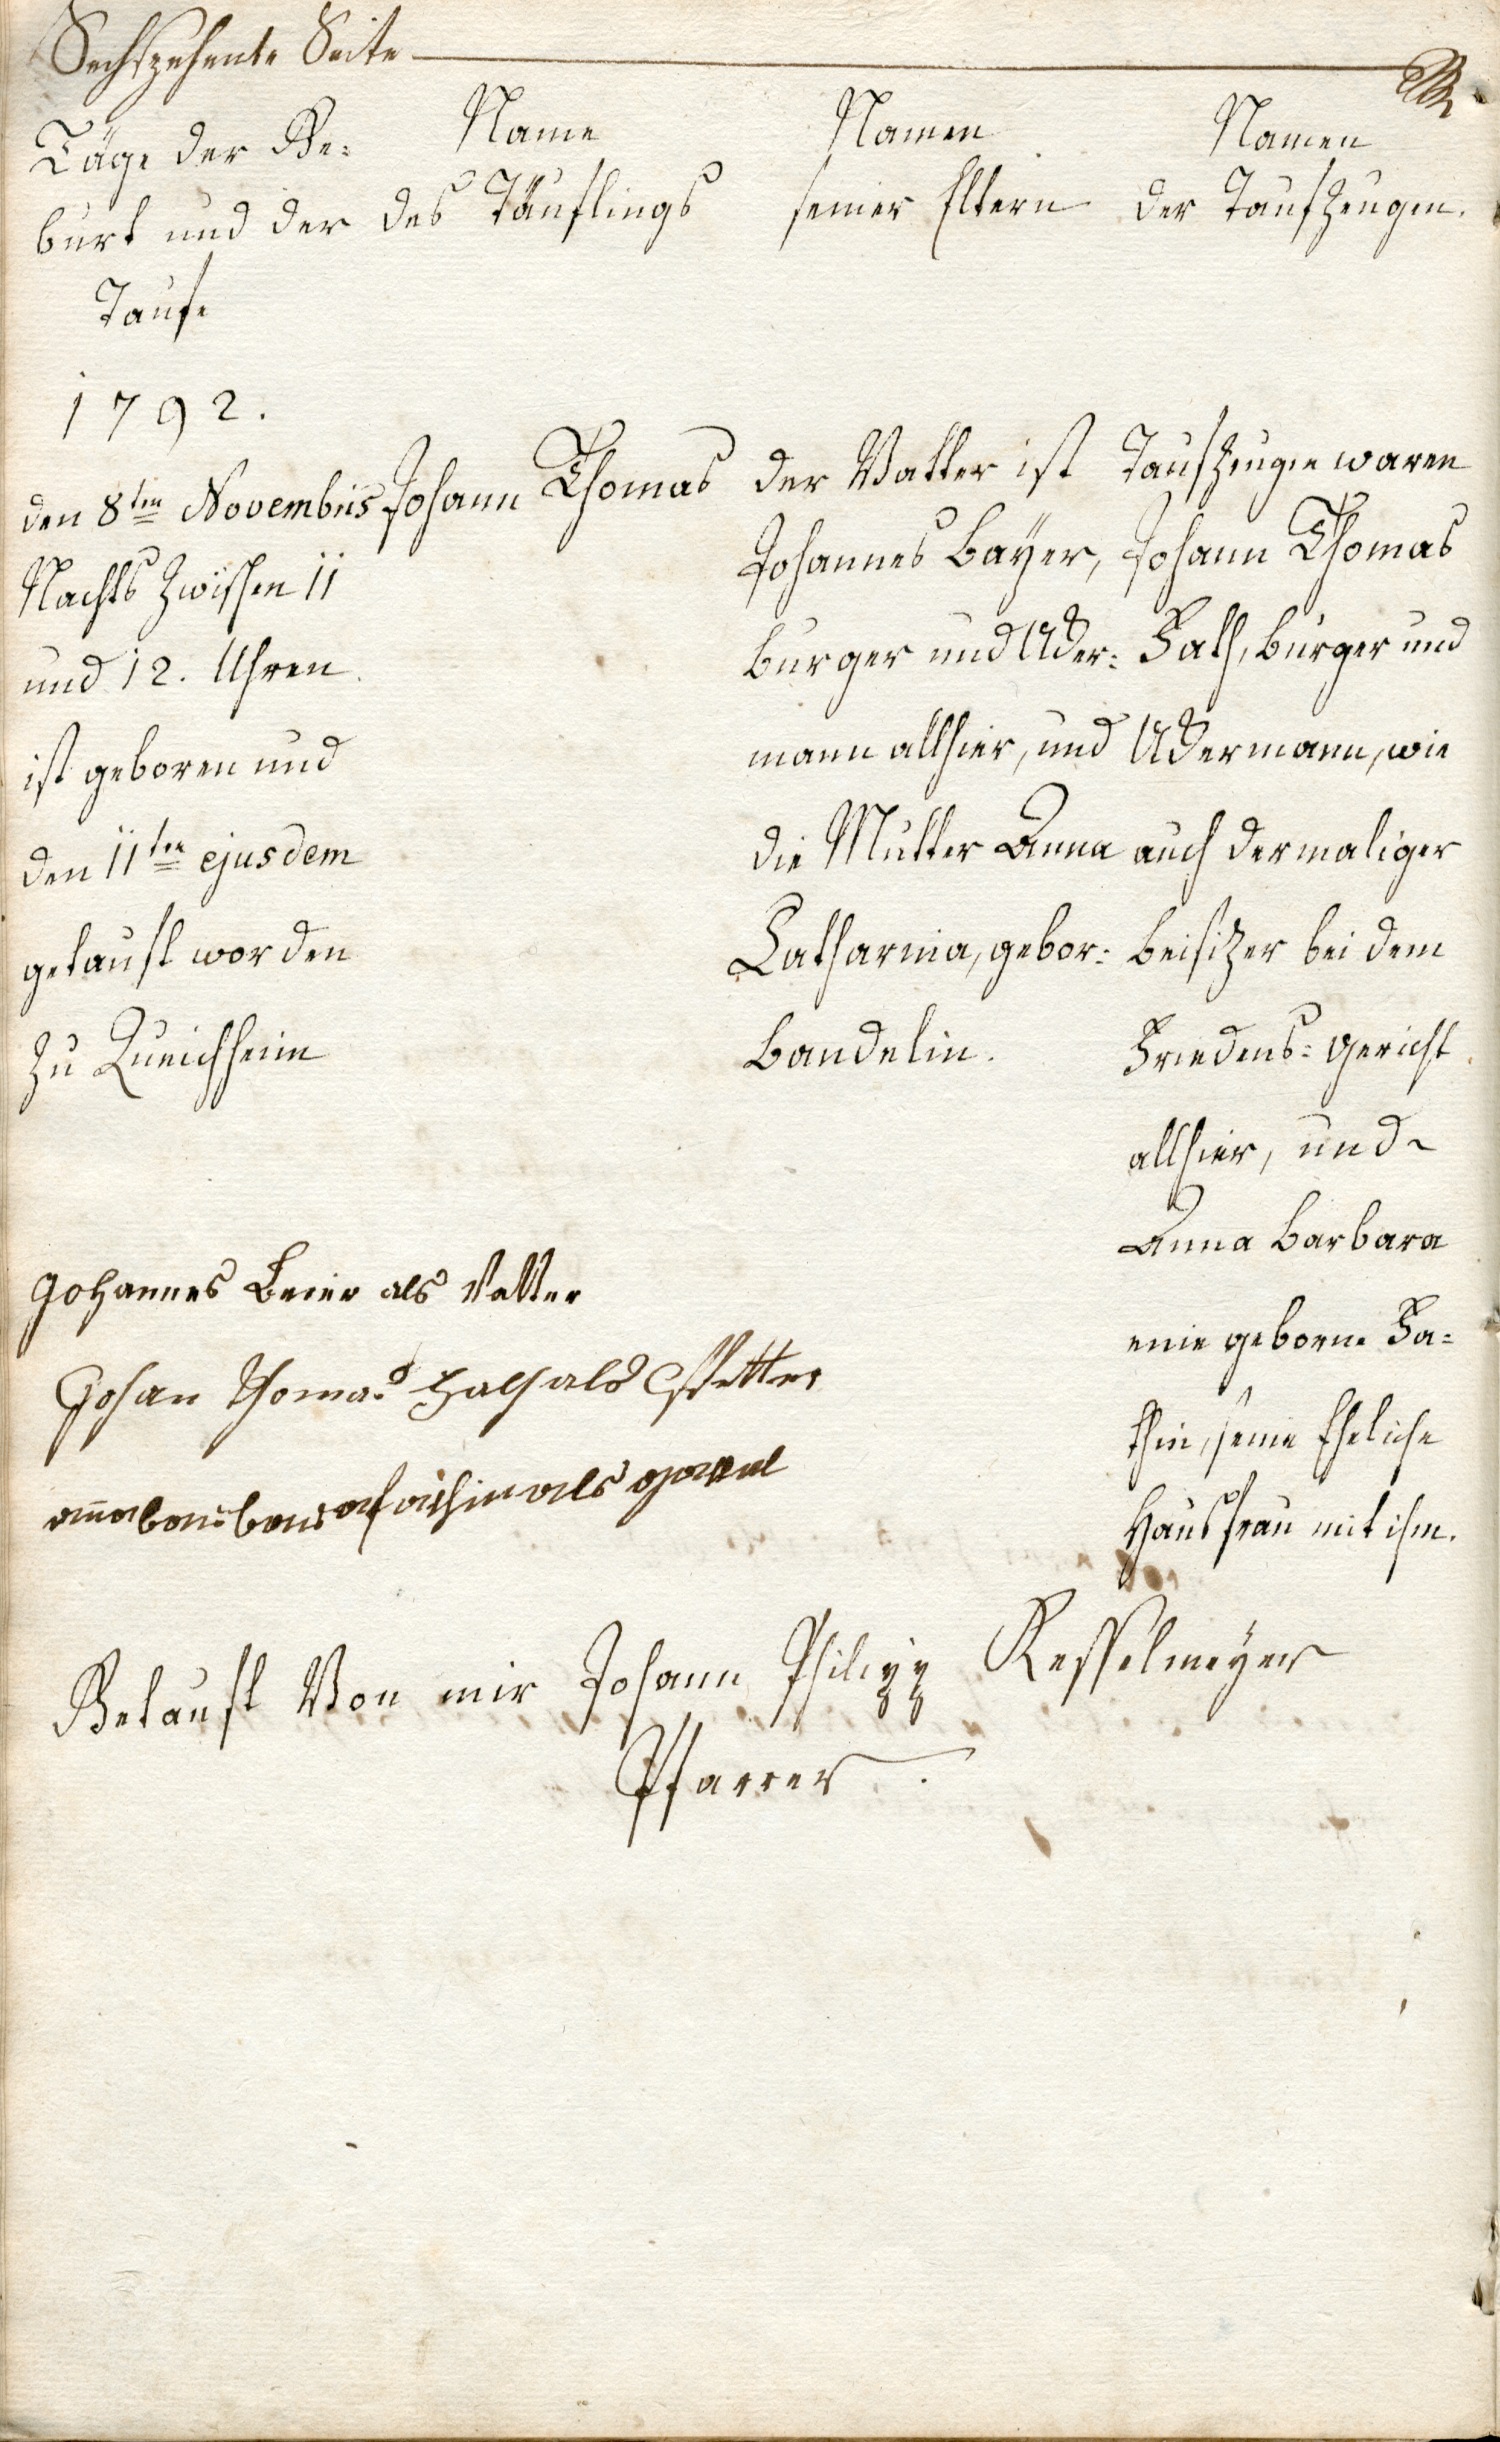 Sechszehente Seite
Täge der Ge=
burt und der
Taufe
Name
des Täuflings
Namen
seiner Eltern
Namen
der Taufzeugen.
1792.
den 8ten Novembris
Nachts zwischen 11
und 12. Uhren
ist geboren und
den 11ten ejusdem
getauft worden
zu Queichheim
Johann Thomas
der Vatter ist
Johannes Bayer,
burger und Acker=
mann allhier, und
die Mutter Anna
Catharina, gebor=
Bandelin.
Taufzeugen waren
Johann Thomas
Fath, burger und
Ackermann, wie
auch dermaliger
beisizer bei dem
Friedens=gericht
allhier, und
Anna Barbara
eine geborne Fa=
thin, seine Eheliche
Hausfrau mit ihm.
Johannes Beier als Vatter
Johan Thomas als Petter
anna barbara als
Getauft Von mir Johann Philipp Kesselmeyer
Pfarrer.